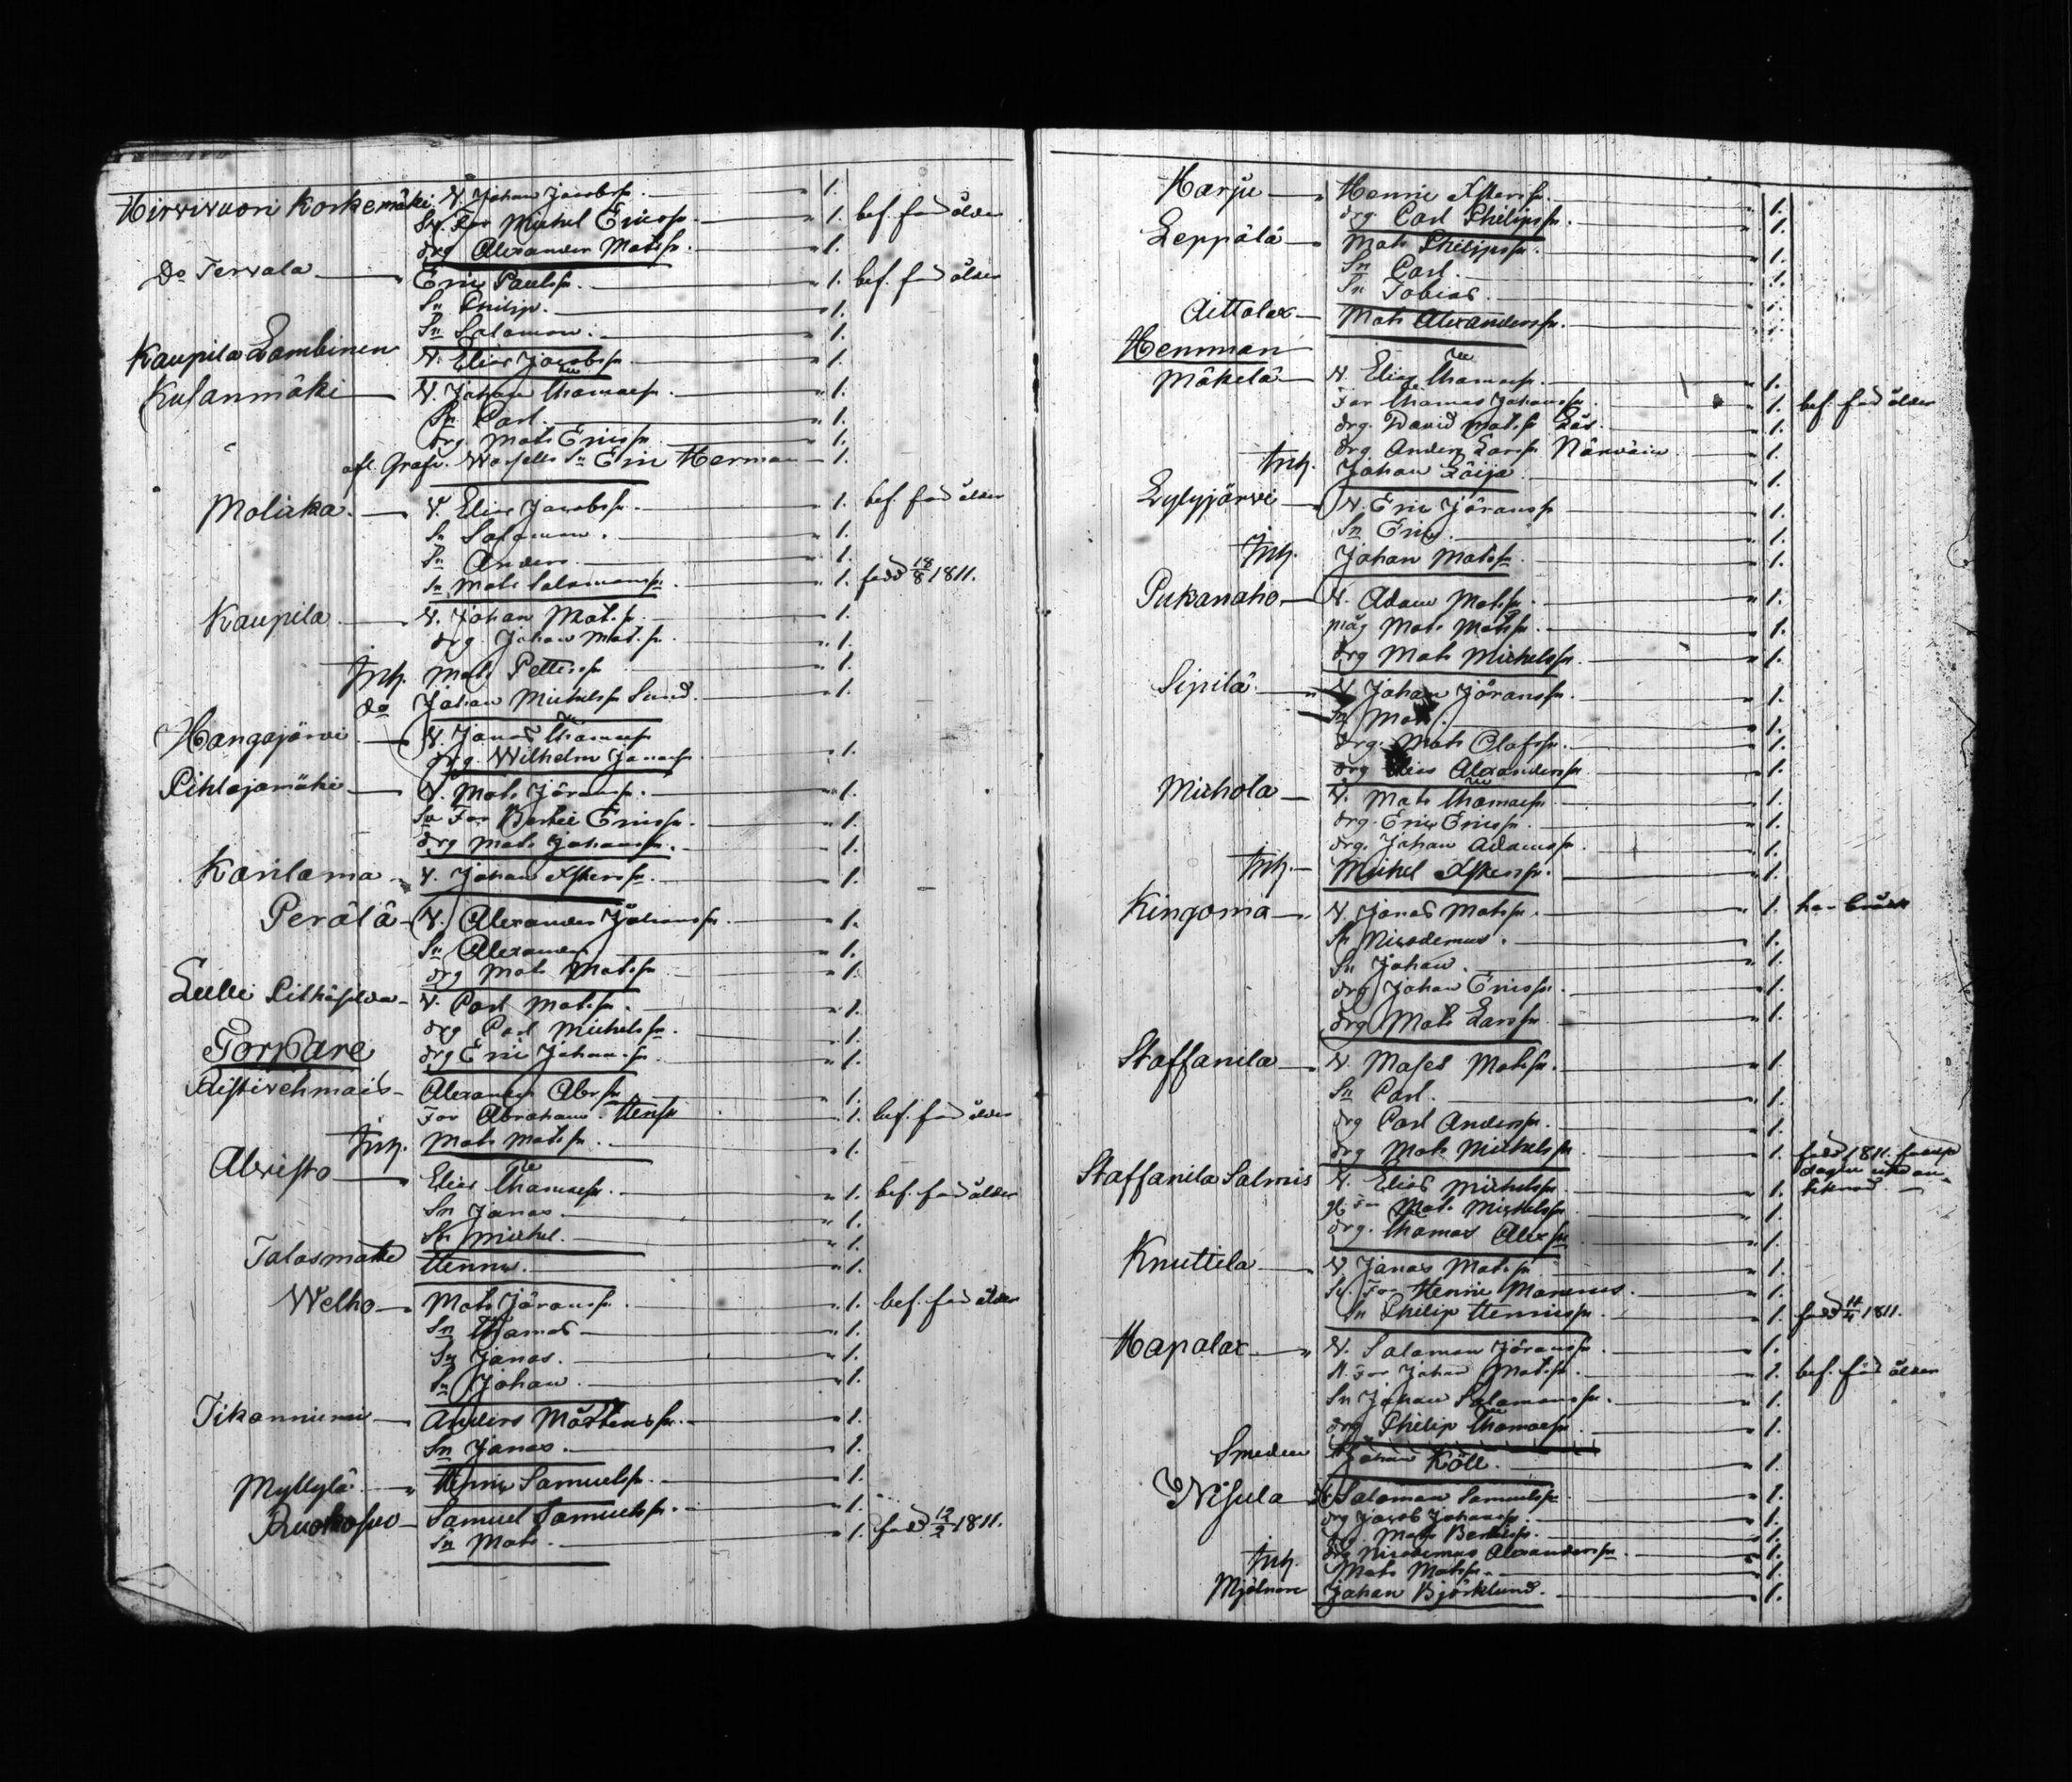 Hirvivuori Korkemäki N. Johan Jacobss. 1.
Sv. Far Michel Ericss. 1. bef. för ålder
drg Alexander Matss. 1.
Do Tervala Eric Paulss. 1. bef. för ålder
Sn Philip. 1.
Sn Salomon. 1.
Kaupila Lambinen N. Elias Jacobss. 1.
Kusanmäki N. Johan Thomass. 1.
Sn Carl. 1.
drg. Mats Ericss. 1.
afl. Sn Eric Herman 1.
Moliika N. Elias Jacobss. 1. bef. för ålder
Sn Salomon. 1.
Sn Anders 1.
Sn Mats Salomonss. 1. född 18/8 1811.
Kaupila N. Johan Mats.s. 1.
drg Johan Mat.s. 1.
Inh. Mats Petterss. 1.
do Johan Michelss. Sund. 1.
Hangajärvi N. Jonas Thomass
drg. Wilhelm Jonass. 1.
Pihlajamäki N. Mats Jöranss. 1.
Sv Far Bertil Ericss. 1.
drg Mats Johanss. 1.
Karilama N. Johan Xsterss. 1.
Perälä N. Alexander Johanss. 1.
Sn Alexander 1.
drg Mats Mats.s. 1.
Lulli Pitkäsilda N. Carl Mats.s. 1.
drg Carl Michelss. 1.
drg Eric Johan.s. 1.
Torpare
Ristivehmais Alexander Abr.s. 1.
Far Abraham Hens. 1. bef. för ålder
Inh. Mats Matss. 1.
Alvisto Elias Thomass. 1. bef. för ålder
Sn Jonas. 1.
Sn Michel. 1.
Talasmatte Henric. 1.
Welho Mats Jöranss. 1. bef. för ålder
Sn Thomas 1.
Sn Jonas. 1.
Sn Johan. 1.
Tikanniemi Anders Mårtenss. 1.
Sn Jonas. 1.
Myllylä Henric Samuelss. 1.
Ruokosuo Samuel Samuelss. 1.
Sn Mats. 1. född 12/2 1811.
Harju Henric Xsterss. 1.
drg. Carl Philipss. 1.
Leppälä Mats Philipss. 1.
Sn Carl. 1.
Sn Tobias. 1.
Aittolax Mats Alexanderss. 1.
Hemman
Mäkelä N. Elias Thomass. 1.
Far Thomas Johanss. 1. bef. för ålder
drg. David Mats.s 1.
drg. Anders Larss. Närväin 1.
Inh. Johan Läijä 1.
Lylyjärvi N. Eric Jöranss 1.
Sn Eric. 1.
Inh. Johan Matss. 1.
Pukanaho N. Adam Mats.s. 1.
måg Mats Matss. 1.
drg Mats Michelss. 1.
Sipilä N. Johan Jöranss. 1.
Sn Mats. 1.
drg. Mats Olofss. 1.
drg Elias Alexanderss 1.
Michola N. Mats Thomass. 1.
drg. Eric Ericss. 1.
drg. Johan Adamss. 1.
Inh. Michel Xsterss. 1.
Kingoma N. Jonas Matss. 1. har bråck
Sn Nicodemus. 1.
Sn Johan. 1.
drg Johan Ericss. 1.
drg Mats Larss. 1.
Staffanila N. Moses Mats.s. 1.
Sn Carl. 1.
drg Carl Anderss. 1.
drg Mats Michelss. 1. född 1811.
Staffanila Salmis N. Elias Michelss. 1.
Mats Michelss. 1.
drg. Thomas Alex.s. 1.
Knuttila N. Jonas Mats.s. 1.
Sv. Far Henric Marcus. 1.
Sn Philip Henricss. 1. född 11/4 1811.
Hapalax N. Salomon Jöranss. 1.
Far Johan Mats.s. 1. bef. för ålder
Sn Johan Salomonss. 1.
drg Philip Thomass. 1.
Smeden Johan Köll. 1.
Nisula N. Salomon Samuelss. 1.
drg Jacob Johanss. 1.
drg Mats Bertilss. 1.
drg Nicodemus Alexanderss. 1.
Inh. Mats Matss. 1.
Mjölnare Johan Björklund. 1.